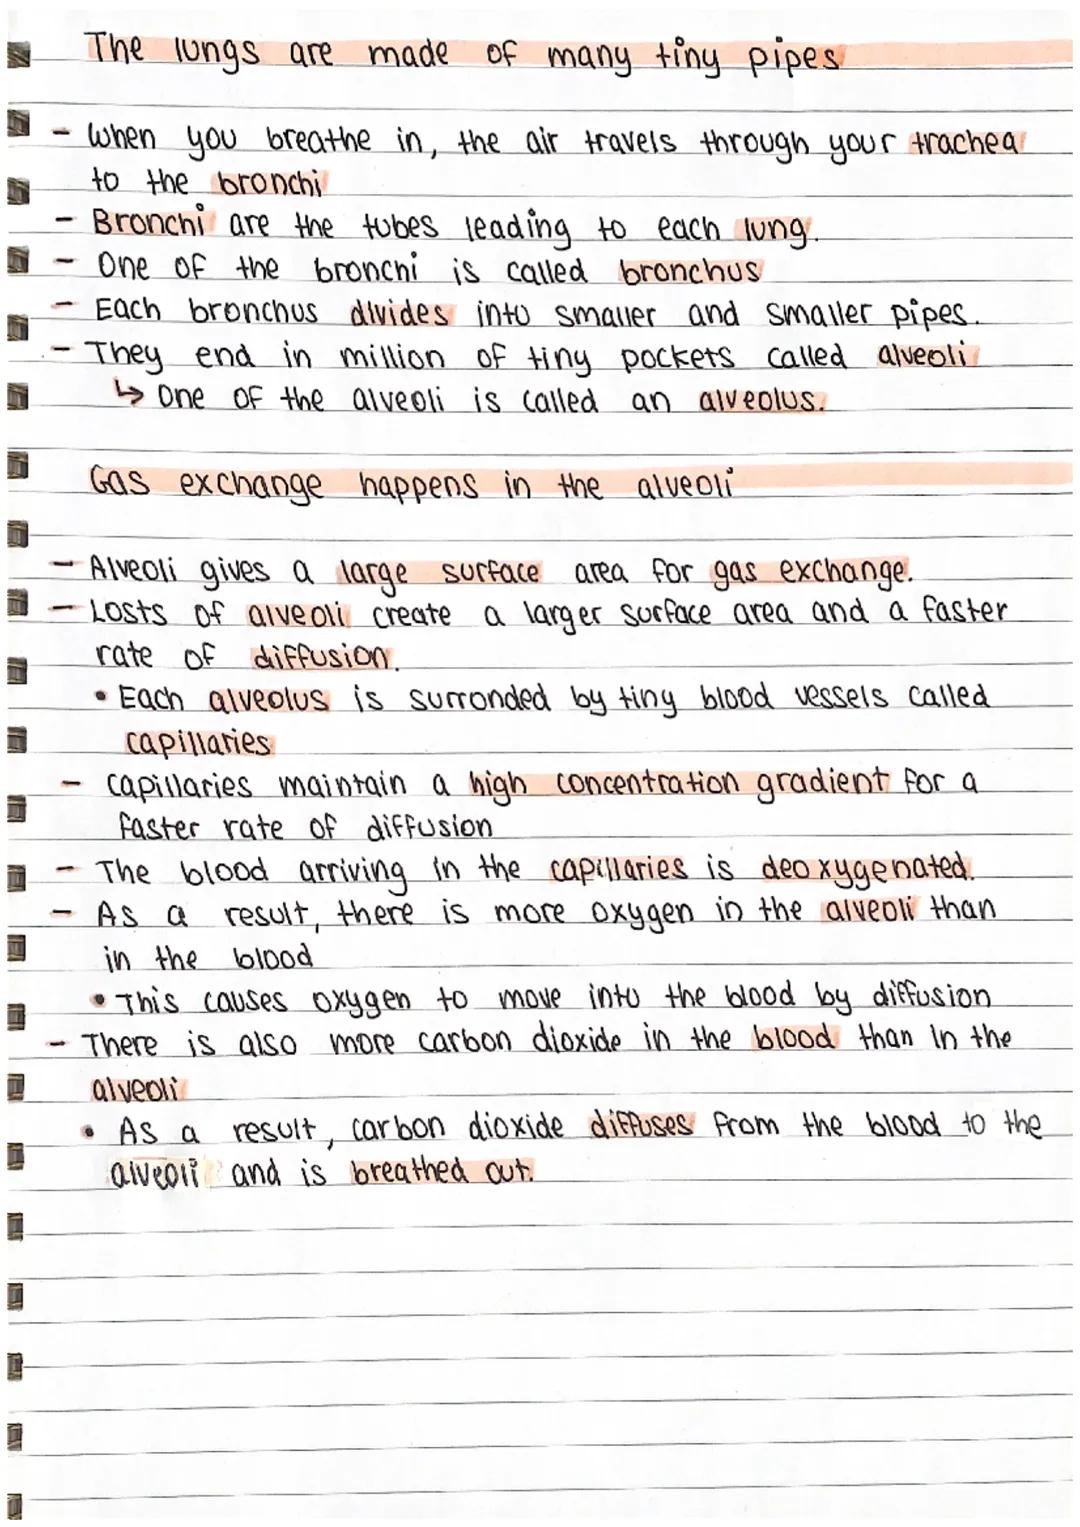 The lungs are made of many tiny pipes
- When you breathe in, the air travels through your trachea
to the bronchi
- Bronchi are the tubes leading to each lung.
- One of the bronchi is called bronchus
- Each bronchus divides into smaller and smaller pipes.
- They end in million of tiny pockets called alveoli
↳ One of the alveoli is called an alveolus.
Gas exchange happens in the alveoli
- Alveoli gives a large surface area for gas exchange.
- Losts of alveoli create a larger surface area and a faster
rate of diffusion.
• Each alveolus is surronded by tiny blood vessels called
capillaries
- Capillaries maintain a high concentration gradient for a
faster rate of diffusion
- The blood arriving in the capillaries is deoxygenated.
- As a result, there is more oxygen in the alveoli than
in the blood
• This causes oxygen to move into the blood by diffusion
- There is also more carbon dioxide in the blood than in the
alveoli
• As a result, carbon dioxide diffuses from the blood to the
alveoli and is breathed out.